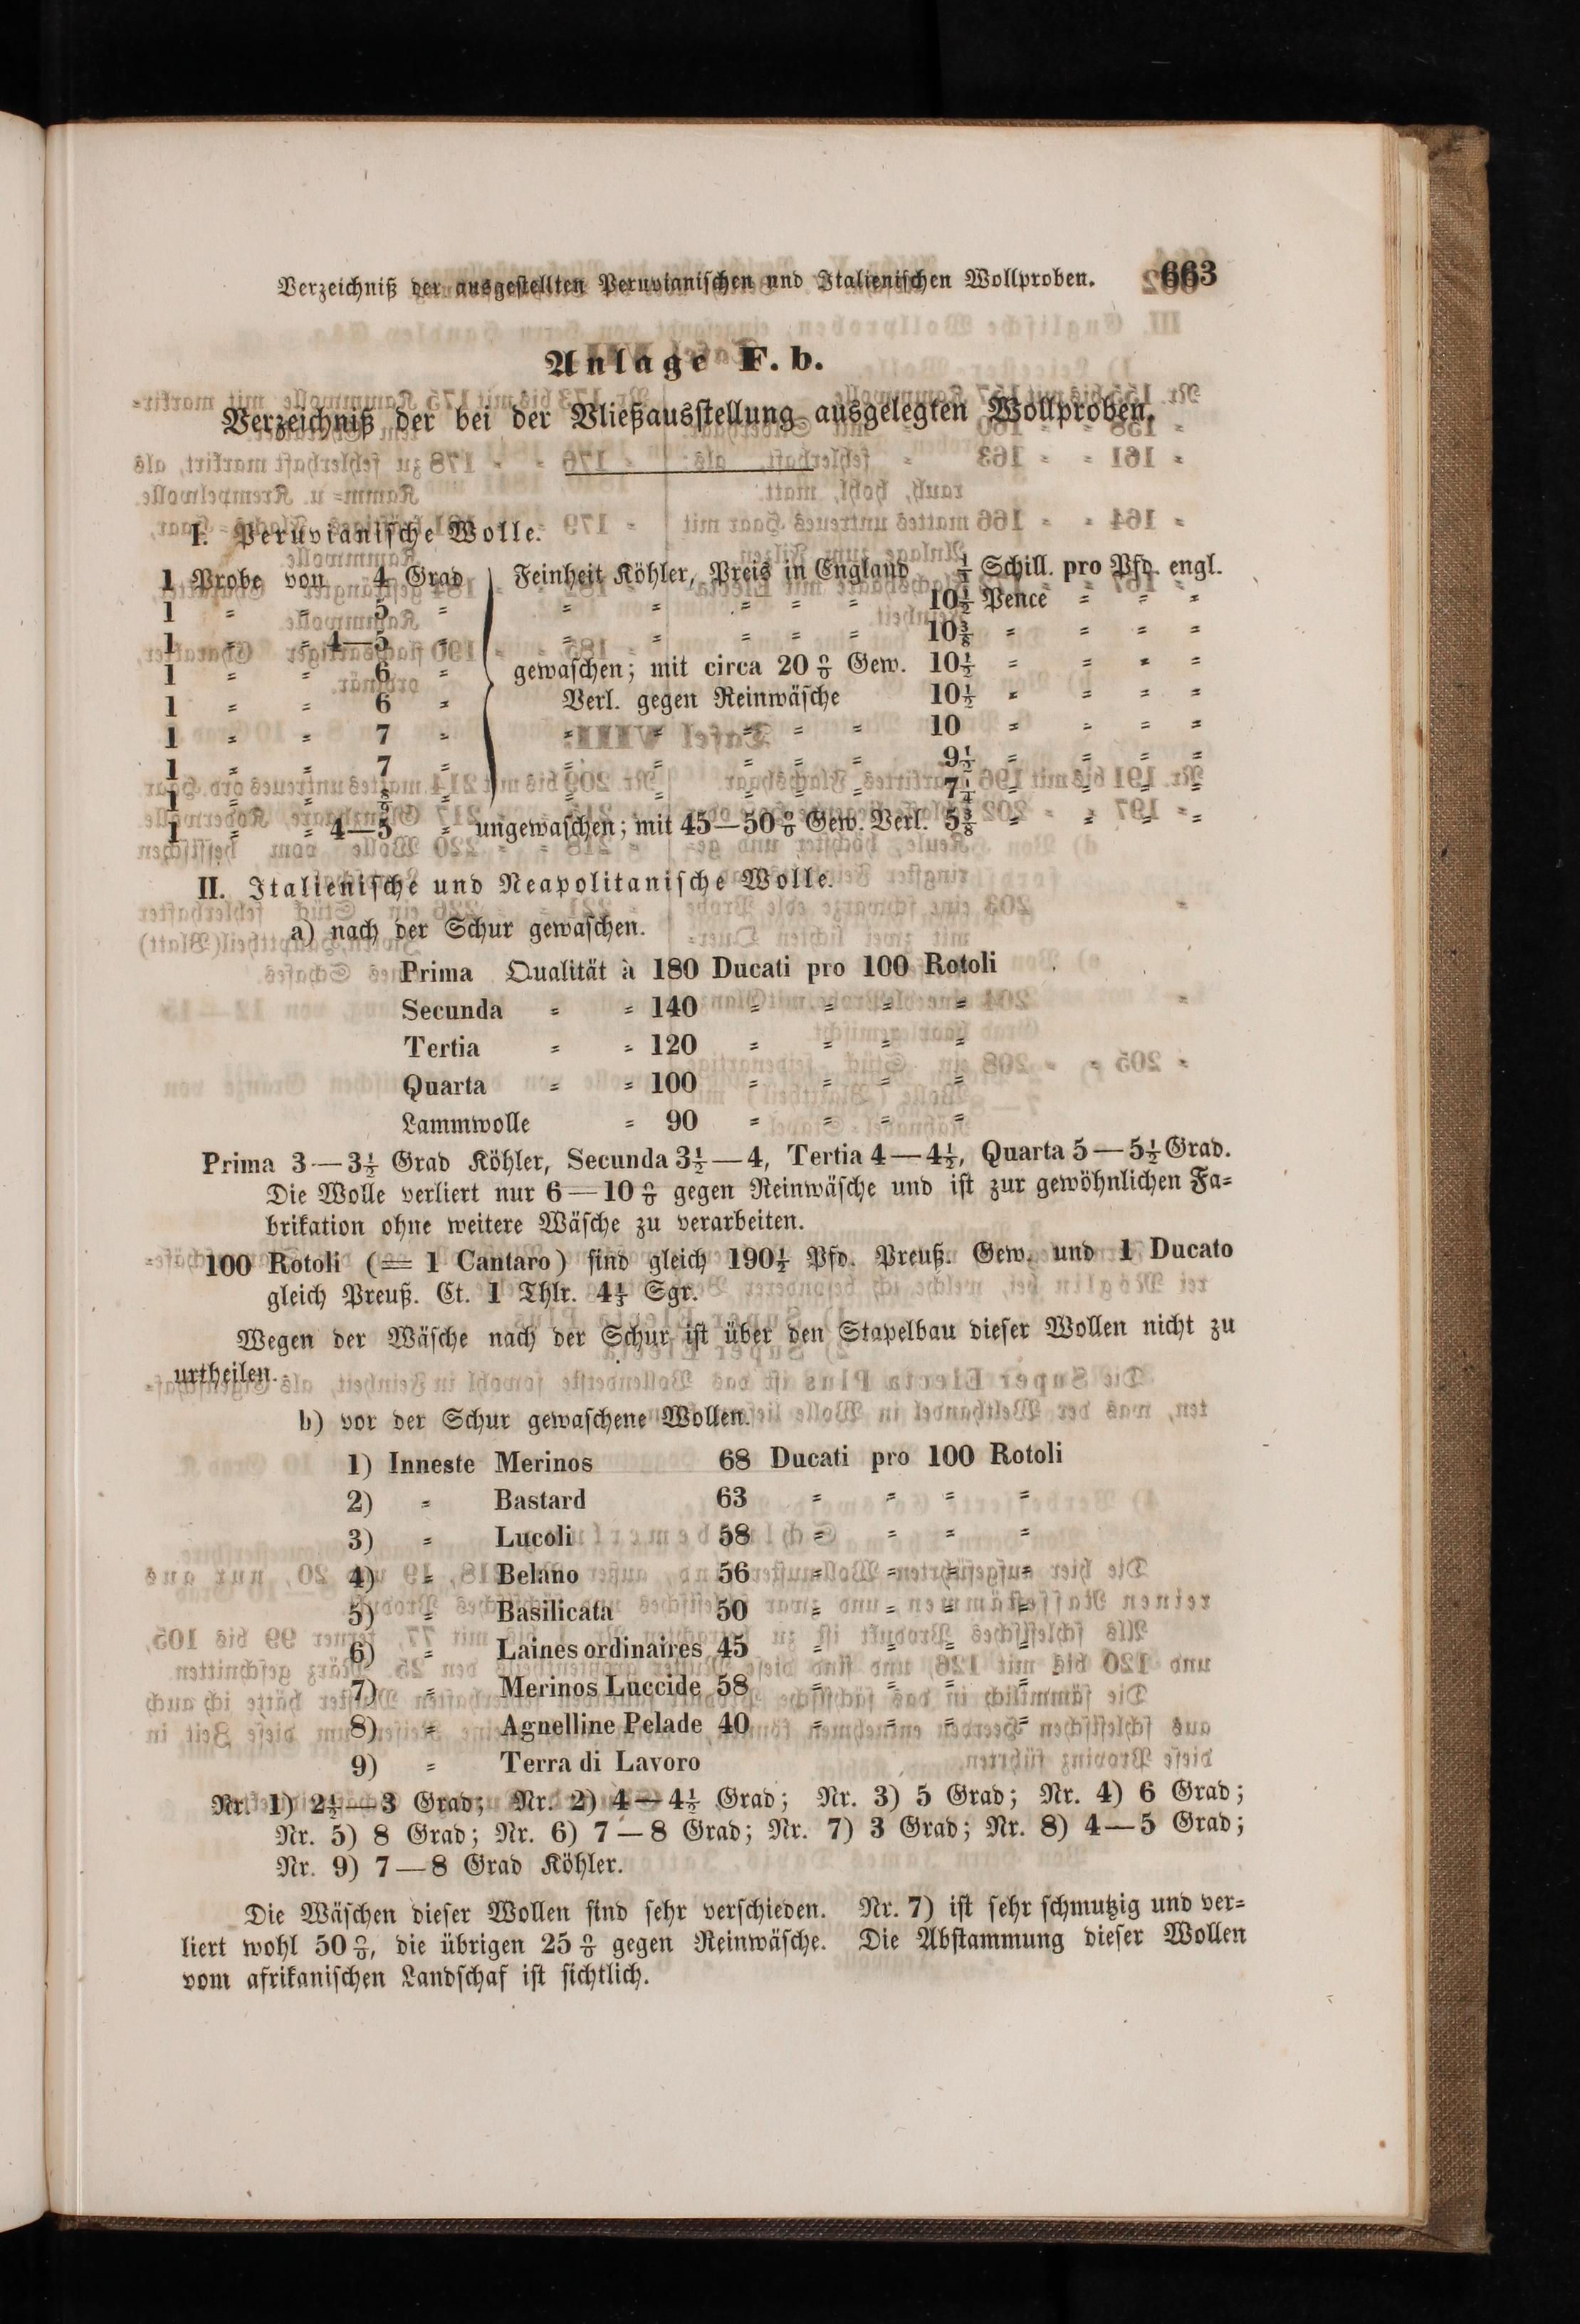 Verzeichniß der ausgestellten Peruvianischen und Italienischen Wollproben. 663
Anlage F. b.
Verzeichniß der bei der Vließausstellung ausgelegten Wollproben.
I. Peruvianische Wolle.
1 Probe von 4 Grad Feinheit Köhler, Preis in England Schill. pro Pfd. engl.
1 = = 5 = = = = = = 10½ Pence = = =
1 = = 4—5 = = = = = = 10⅜ = = = =
1 = = 6 = gewaschen; mit circa 20 % Gew. 10½ = = = =
1 = = 6 = Verl. gegen Reinwäsche 10½ = = = =
1 = = 7 = = = = = = 10 = = = =
1 = = 7 = = = = = = 9½ = = = =
1 = = = = = = = = 7¼ = = = =
1 = = 4—5 = ungewaschen; mit 45—50 % Gew. Verl. 5⅜ = = = =
II. Italienische und Neapolitanische Wolle.
a) nach der Schur gewaschen.
Prima Qualität à 180 Ducati pro 100 Rotoli
Secunda = = 140 = = = =
Tertia = = 120 = = = =
Quarta = = 100 = = = =
Lammwolle = 90 = = = =
Prima 3—3½ Grad Köhler, Secunda 3½—4, Tertia 4—4½, Quarta 5—5½ Grad.
Die Wolle verliert nur 6—10 % gegen Reinwäsche und ist zur gewöhnlichen Fa=
brikation ohne weitere Wäsche zu verarbeiten.
100 Rotoli (= 1 Cantaro) sind gleich 190½ Pfd. Preuß. Gew. und 1 Ducato
gleich Preuß. Ct. 1 Thlr. 4½ Sgr.
Wegen der Wäsche nach der Schur ist über den Stapelbau dieser Wollen nicht zu
urtheilen.
b) vor der Schur gewaschene Wollen.
1) Inneste Merinos 68 Ducati pro 100 Rotoli
2) = Bastard 63 = = = =
3) = Lucoli 58 = = = =
4) = Belano 56 = = = =
5) = Basilicata 50 = = = =
6) = Laines ordinaires 45 = = = =
7) = Merinos Luccide 58 = = = =
8) = Agnelline Pelade 40 = = = =
9) = Terra di Lavoro
Nr. 1) 2½—3 Grad; Nr. 2) 4—4½ Grad; Nr. 3) 5 Grad; Nr. 4) 6 Grad;
Nr. 5) 8 Grad; Nr. 6) 7—8 Grad; Nr. 7) 3 Grad; Nr. 8) 4—5 Grad;
Nr. 9) 7—8 Grad Köhler.
Die Wäschen dieser Wollen sind sehr verschieden. Nr. 7) ist sehr schmutzig und ver=
liert wohl 50 %, die übrigen 25 % gegen Reinwäsche. Die Abstammung dieser Wollen
vom afrikanischen Landschaf ist sichtlich.